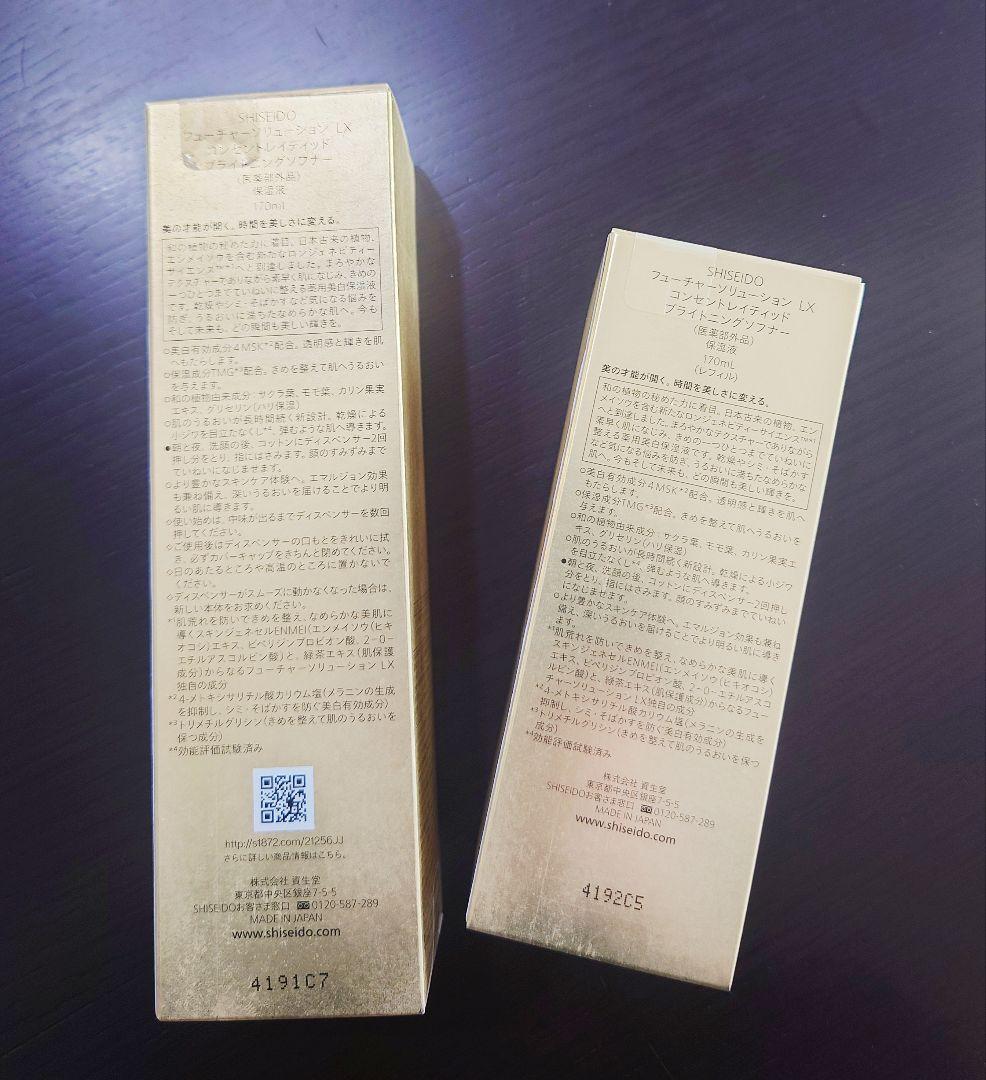 SHISEIDO
フューチャーソリューション LX
コンセントレイティッド
ブライトニングソフナー
(医薬部外品)
保湿液
170mL
美の才能が開く。時間を美しさに変える。
和の植物の秘めた力に着目。日本古来の植物、
エンメイソウを含む新たなロンジェネビティー
サイエンスTM*1へと到達しました。まろやかな
テクスチャーでありながら素早く肌になじみ、きめの
一つひとつまでていねいに整える薬用美白保湿液
です。乾燥やシミ・そばかすなど気になる悩みを
防ぎ、うるおいに満ちたなめらかな肌へ。今も
そして未来も、どの瞬間も美しい輝きを。
○美白有効成分4MSK*2配合。透明感と輝きを肌
へもたらします。
○保湿成分TMG*3配合。きめを整えて肌へうるおい
を与えます。
○和の植物由来成分：サクラ葉、モモ葉、カリン果実
エキス、グリセリン(ハリ保湿)
○肌のうるおいが長時間続く新設計。乾燥による
小ジワを目立たなくし*4、弾むような肌へ導きます。
●朝と夜、洗顔の後、コットンにディスペンサー2回
押し分をとり、指にはさみます。顔のすみずみまで
ていねいになじませます。
○より豊かなスキンケア体験へ。エマルジョン効果
も兼ね備え、深いうるおいを届けることでより明
るい肌に導きます。
◇使い始めは、中味が出るまでディスペンサーを数回
押してください。
◇ご使用後はディスペンサーの口もとをきれいに拭
き、必ずカバーキャップをきちんと閉めてください。
◇日のあたるところや高温のところに置かないで
ください。
◇ディスペンサーがスムーズに動かなくなった場合は、
新しい本体をお求めください。
*1肌荒れを防いできめを整え、なめらかな美肌に
導くスキンジェネセルENMEI(エンメイソウ(ヒキ
オコシ)エキス、ピペリジンプロピオン酸、2-O-
エチルアスコルビン酸)と、緑茶エキス(肌保護
成分)からなるフューチャーソリューション LX
独自の成分
*2 4-メトキシサリチル酸カリウム塩(メラニンの生成
を抑制し、シミ・そばかすを防ぐ美白有効成分)
*3トリメチルグリシン(きめを整えて肌のうるおいを
保つ成分)
*4効能評価試験済み
http://s1872.com/21256JJ
さらに詳しい商品情報はこちら。
株式会社 資生堂
東京都中央区銀座7-5-5
SHISEIDOお客さま窓口 0120-587-289
MADE IN JAPAN
www.shiseido.com
4191C7
SHISEIDO
フューチャーソリューション LX
コンセントレイティッド
ブライトニングソフナー
(医薬部外品)
保湿液
170mL
(レフィル)
美の才能が開く。時間を美しさに変える。
和の植物の秘めた力に着目。日本古来の植物、エン
メイソウを含む新たなロンジェネビティーサイエンスTM*1
へと到達しました。まろやかなテクスチャーでありながら
素早く肌になじみ、きめの一つひとつまでていねいに
整える薬用美白保湿液です。乾燥やシミ・そばかす
など気になる悩みを防ぎ、うるおいに満ちたなめらかな
肌へ。今もそして未来も、どの瞬間も美しい輝きを。
○美白有効成分4MSK*2配合。透明感と輝きを肌へ
もたらします。
○保湿成分TMG*3配合。きめを整えて肌へうるおいを
与えます。
○和の植物由来成分：サクラ葉、モモ葉、カリン果実エ
キス、グリセリン(ハリ保湿)
○肌のうるおいが長時間続く新設計。乾燥による小ジワ
を目立たなくし*4、弾むような肌へ導きます。
●朝と夜、洗顔の後、コットンにディスペンサー2回押し
分をとり、指にはさみます。顔のすみずみまでていねい
になじませます。
○より豊かなスキンケア体験へ。エマルジョン効果も兼ね
備え、深いうるおいを届けることでより明るい肌に導き
ます。
*1肌荒れを防いできめを整え、なめらかな美肌に導く
スキンジェネセルENMEI(エンメイソウ(ヒキオコシ)
エキス、ピペリジンプロピオン酸、2-O-エチルアスコ
ルビン酸)と、緑茶エキス(肌保護成分)からなるフュー
チャーソリューション LX独自の成分
*2 4-メトキシサリチル酸カリウム塩(メラニンの生成を
抑制し、シミ・そばかすを防ぐ美白有効成分)
*3トリメチルグリシン(きめを整えて肌のうるおいを保つ
成分)
*4効能評価試験済み
株式会社 資生堂
東京都中央区銀座7-5-5
SHISEIDOお客さま窓口 0120-587-289
MADE IN JAPAN
www.shiseido.com
4192C5